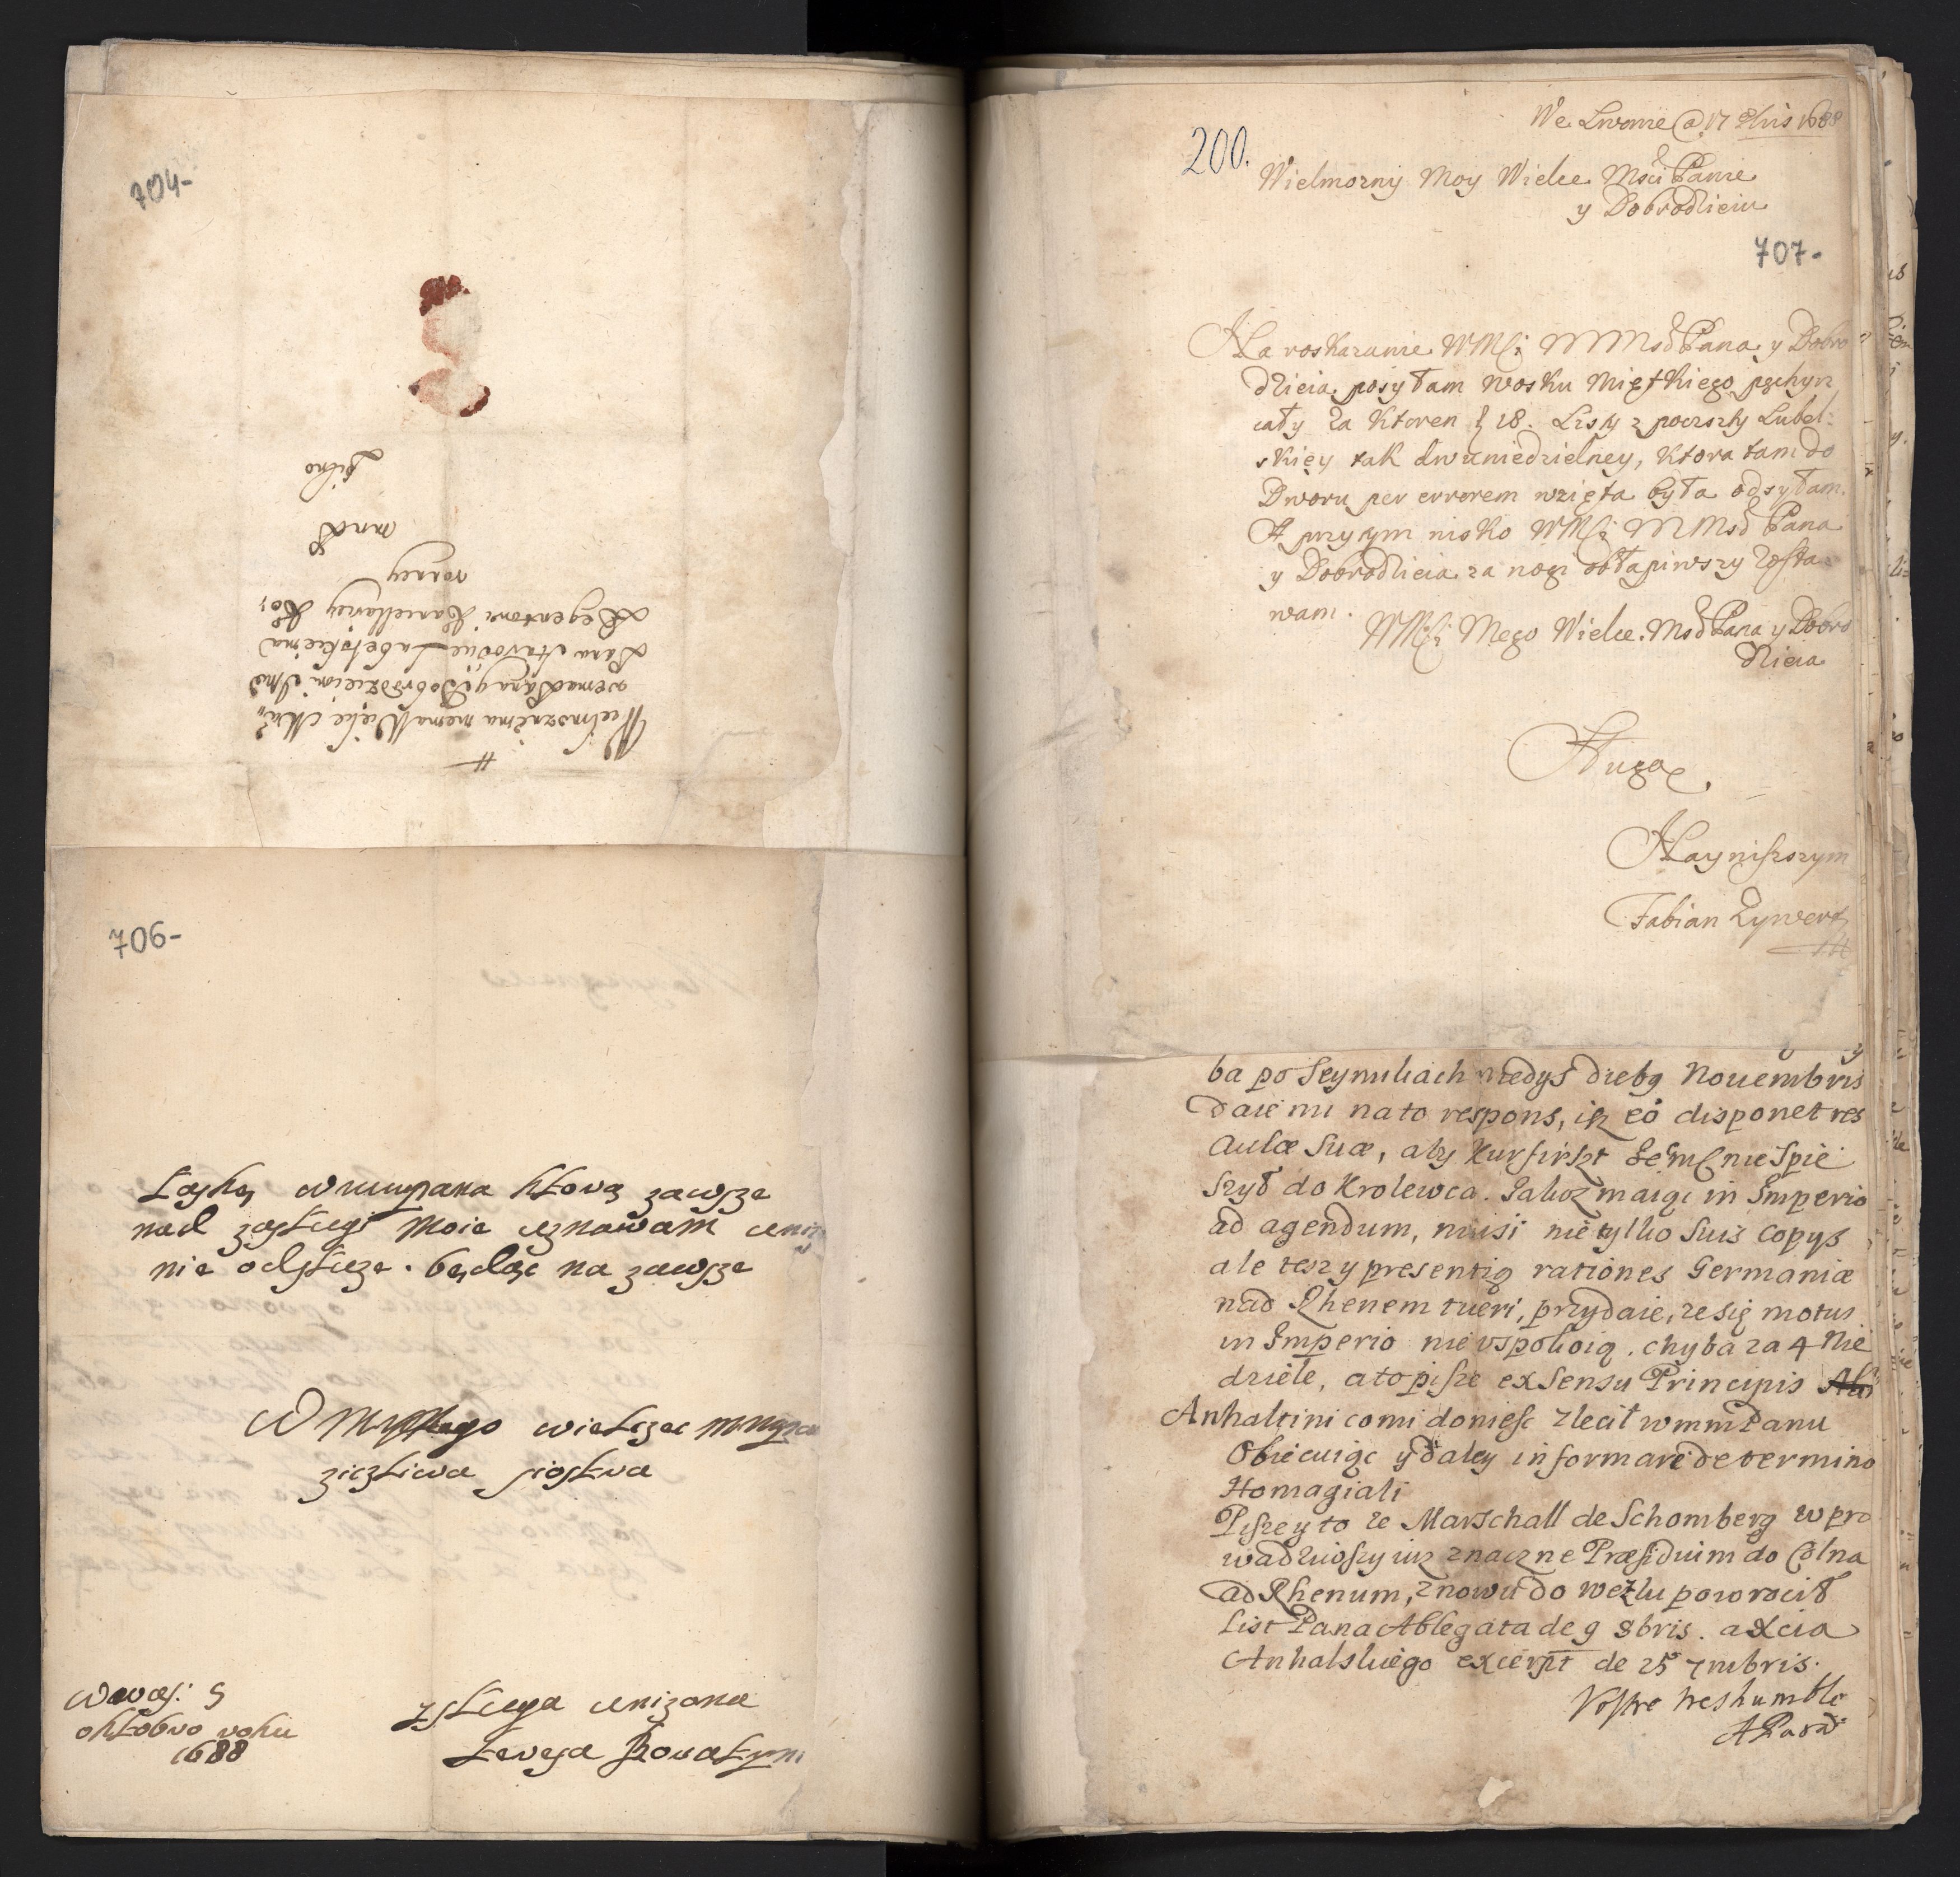 704-
Wielmoznemu memu Wielce Mci
wemu Panu y Dobrodzieiowi Jmci
Panu Staroscie Lubelskiemu
Regentowi Kancellariey Ko,
ronney
mnd
pilno
706-
Łaskę wmmpana ktorą zawsze
nad zasługi moie uznawam uniz
nie odsłuze. będąc na zawsze
wielzec
zyczliwa siostra
Wawas: 9
oktobro roku
1688
y sługa unizona
Teresa
We Lwowie @ 17 8bris 1688
200.
Wielmozny Moy Wielce Mści Panie
y Dobrodzieiu
707-
Na roskazanie WMści MMsd Pana y Dobro
dzieia posyłam wosku Miętkiego
cały za ktoren f 18. Listy z poczty Lubel:
skiey tak dwuniedzielney, ktora tam do
Dworu per errorem wzięta była odsyłam.
A przytym nisko WMści MMsd Pana
y Dobrodzieia za nogi obłapiwszy zosta=
wam.
WMści Mego Wielce Msd Pana y Dobro
dzieia
Sługa
Nayniszszym
Fabian Zywert
ba po Seymikach kiedys diebg Nouembris
daie mi na to respons, iz eo disponet res
Aulæ Suæ, aby Kurfirszt Je mć nie Spie
szył do Krolewca. Jakoz maiąc in Imperio
ad agendum, musi nie tylko Suis copys
ale teszy presentią rationes Germaniæ
nad Rhenem tueri, przydaie, ze się motus
in Imperio nie uspokoią. chyba za 4 Nie
dziele, a to pisze ex Sensu Principis
Anhaltini co mi doniesc zlecił wmm Panu
Obiecuiąc y daley informare de termino
Homagiali
Pisze y to ze Marschall de Schomberg wpro
wadziwszy iuz znaczne Præsidium do Colna
ad Rhenum, znowu do Wezlu powrocił
List Pana Ablegata de 9 8bris. a Xcia
Anhalskiego excerpt de 25 7mbris.
Vostre tres humble